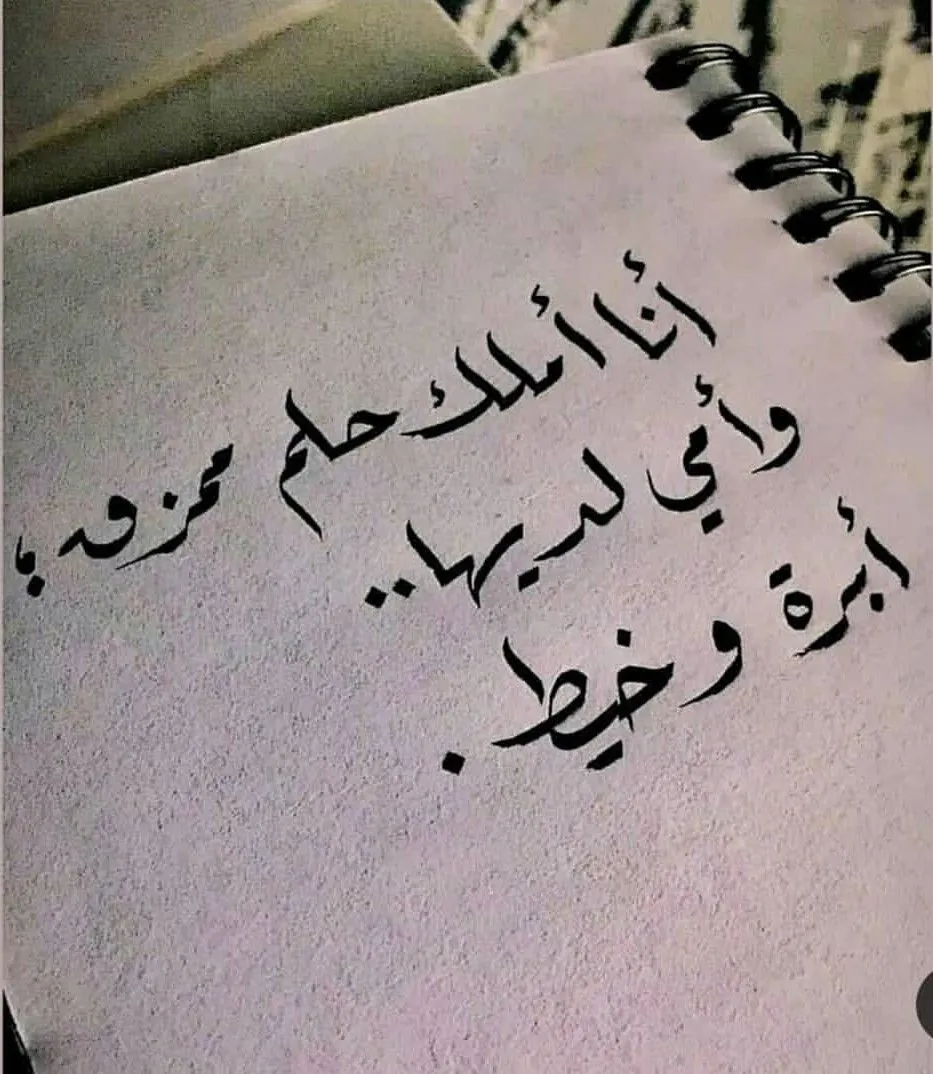 أنا أملك حلم ممزق؛
وأمي لديها..
أبرة و خيط.